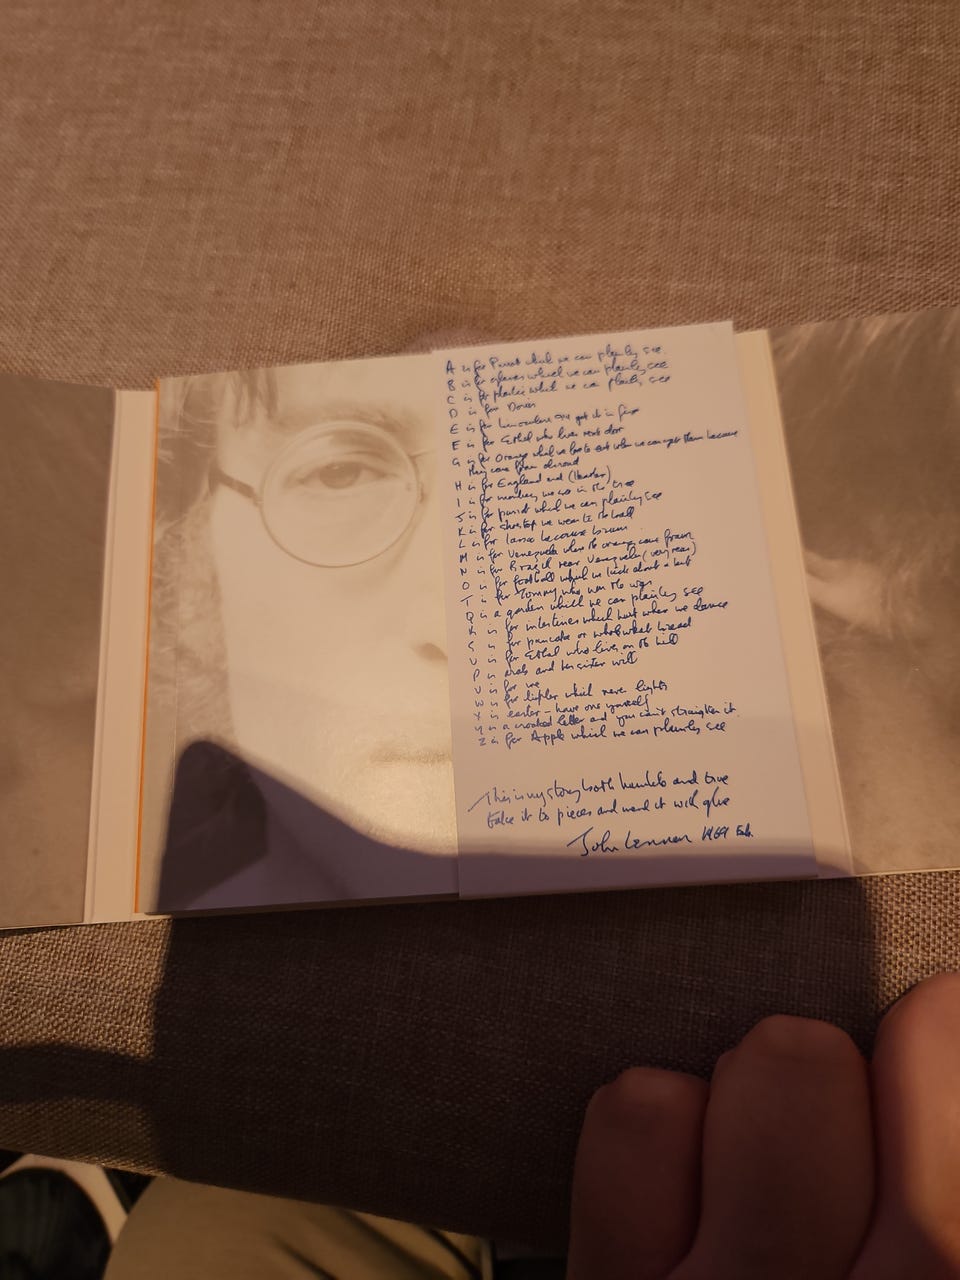 A is for Parrot which we can plainly see.
B is for glasses which we can plainly see
C is for plastic which we can plainly see
D is for Doris
E is for binoculars get it in five
E is for Ethel who lives next door
G is for Orange which we love to eat when we can get them because
they come from abroad
H is for England and (Heather)
I is for monkey we see in the tree
J is for parrot which we can plainly see
K is for shoetop we wear to the ball
L is for lance because brown
M is for Venezuela where the oranges come from
N is for Brazil near Venezuela (very near)
O is for football which we kick about a bit
T is for Tommy who won the war
Q is a garden which we can plainly see
R is for intestines which hurt when we dance
S is for pancake or whole wheat bread
U is for Ethel who lives on the hill
P is arab and her sister will
V is for me
W is for lighter which never lights
X is easter - have one yourself
Y is a crooked letter and you can't straighten it
Z is for Apple which we can plainly see
This is my story both humble and true
take it to pieces and mend it with glue
John Lennon 1969 Feb.